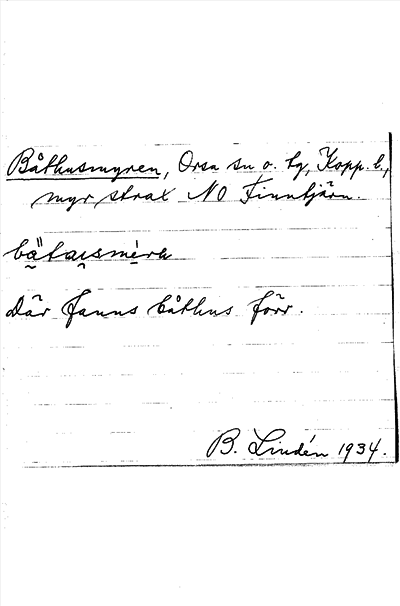 Båthusmyren, Orsa sn o. tg, Kopp. l.,
myr strax NO Finntjärn.
Där fanns båthus förr.
B. Lindén 1934.